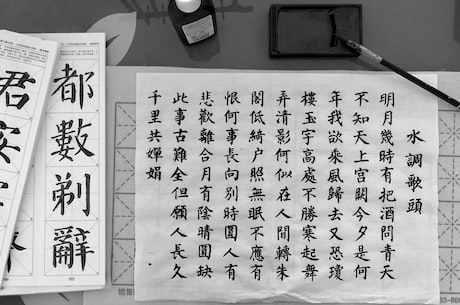 水調歌頭
明月幾時有把酒問青天
不知天上宮闕今夕是何
年我欲乘風歸去又恐瓊
樓玉宇高處不勝寒起舞
弄清影何似在人間轉朱
閣低綺户照無眠不應有
恨何事長向別時圓人有
悲歡離合月有陰晴圓缺
此事古難全但願人長久
千里共嬋娟
都數剃辭
君